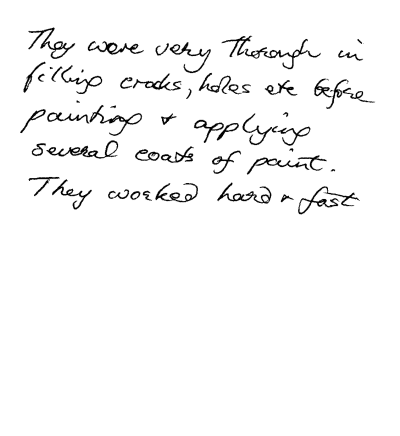 They were very thorough in
filling cracks, holes etc before
painting & applying
several coats of paint.
They worked hard & fast